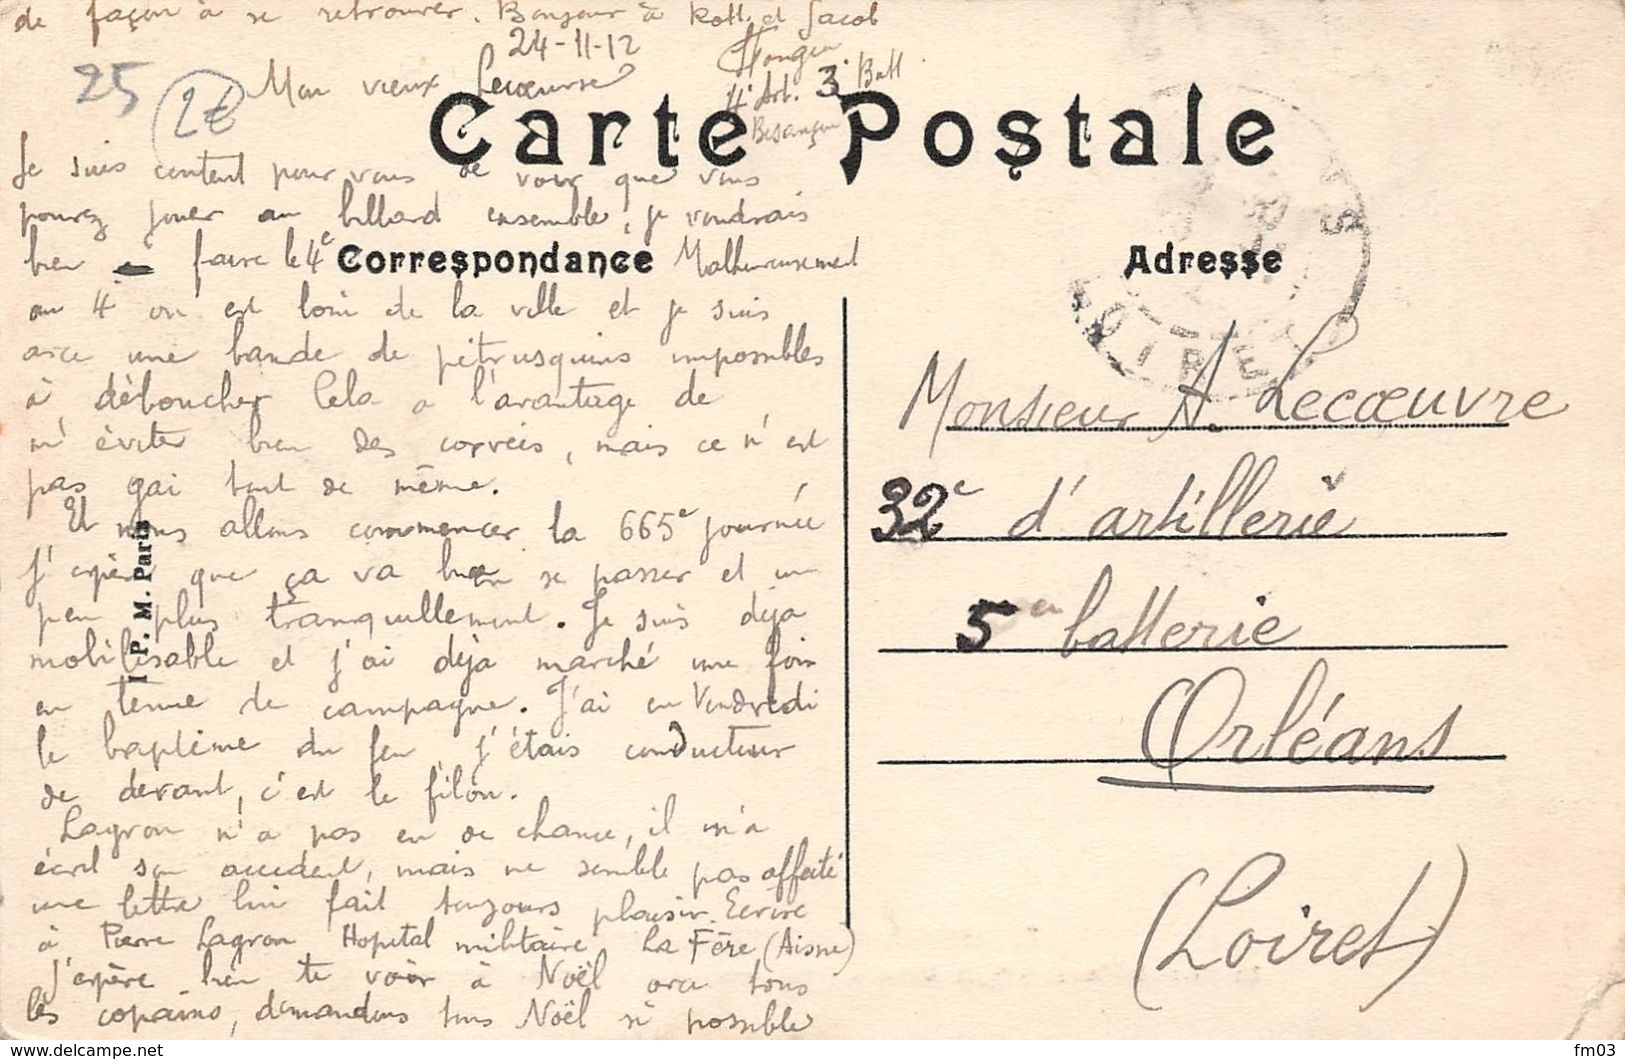 de façon à se retrouver. Bonjour à Rott et Jacob
24-11-12
25
2€
Mon vieux Lecoeuvre
4e Art. 3e Batt.
Besançon
Carte Postale
Je suis content pour vous de voir que vous
pourez jouer au billard ensemble, je voudrais
bien faire le 4e Malheureusement
Correspondance
Adresse
au 4 on est loin de la ville et je suis
avec une bande de pétrusquins impossibles
à déboucher Cela a l'avantage de
m'éviter bien des corvées, mais ce n'est
pas gai tout de même.
Et nous allons commencer la 665e journée
J'espère que ça va bien se passer et un
peu plus tranquillement. Je suis déjà
mobilisable et j'ai déjà marché une fois
en tenue de campagne. J'ai eu Vendredi
le baptême du feu, j'étais conducteur
de devant, c'est le filon.
Lagron n'a pas eu de chance, il m'a
écrit son accident, mais ne semble pas affecté
une lettre lui fait toujours plaisir. Ecrire
à Pierre Lagron Hopital militaire La Fère (Aisne)
J'espère bien te voir à Noël avec tous
les copains, demandons tous Noël si possible
I. P. M. Paris
Monsieur A. Lecœuvre
32e d'artillerie
5e batterie
Orléans
(Loiret)
fm03
www.delcampe.net